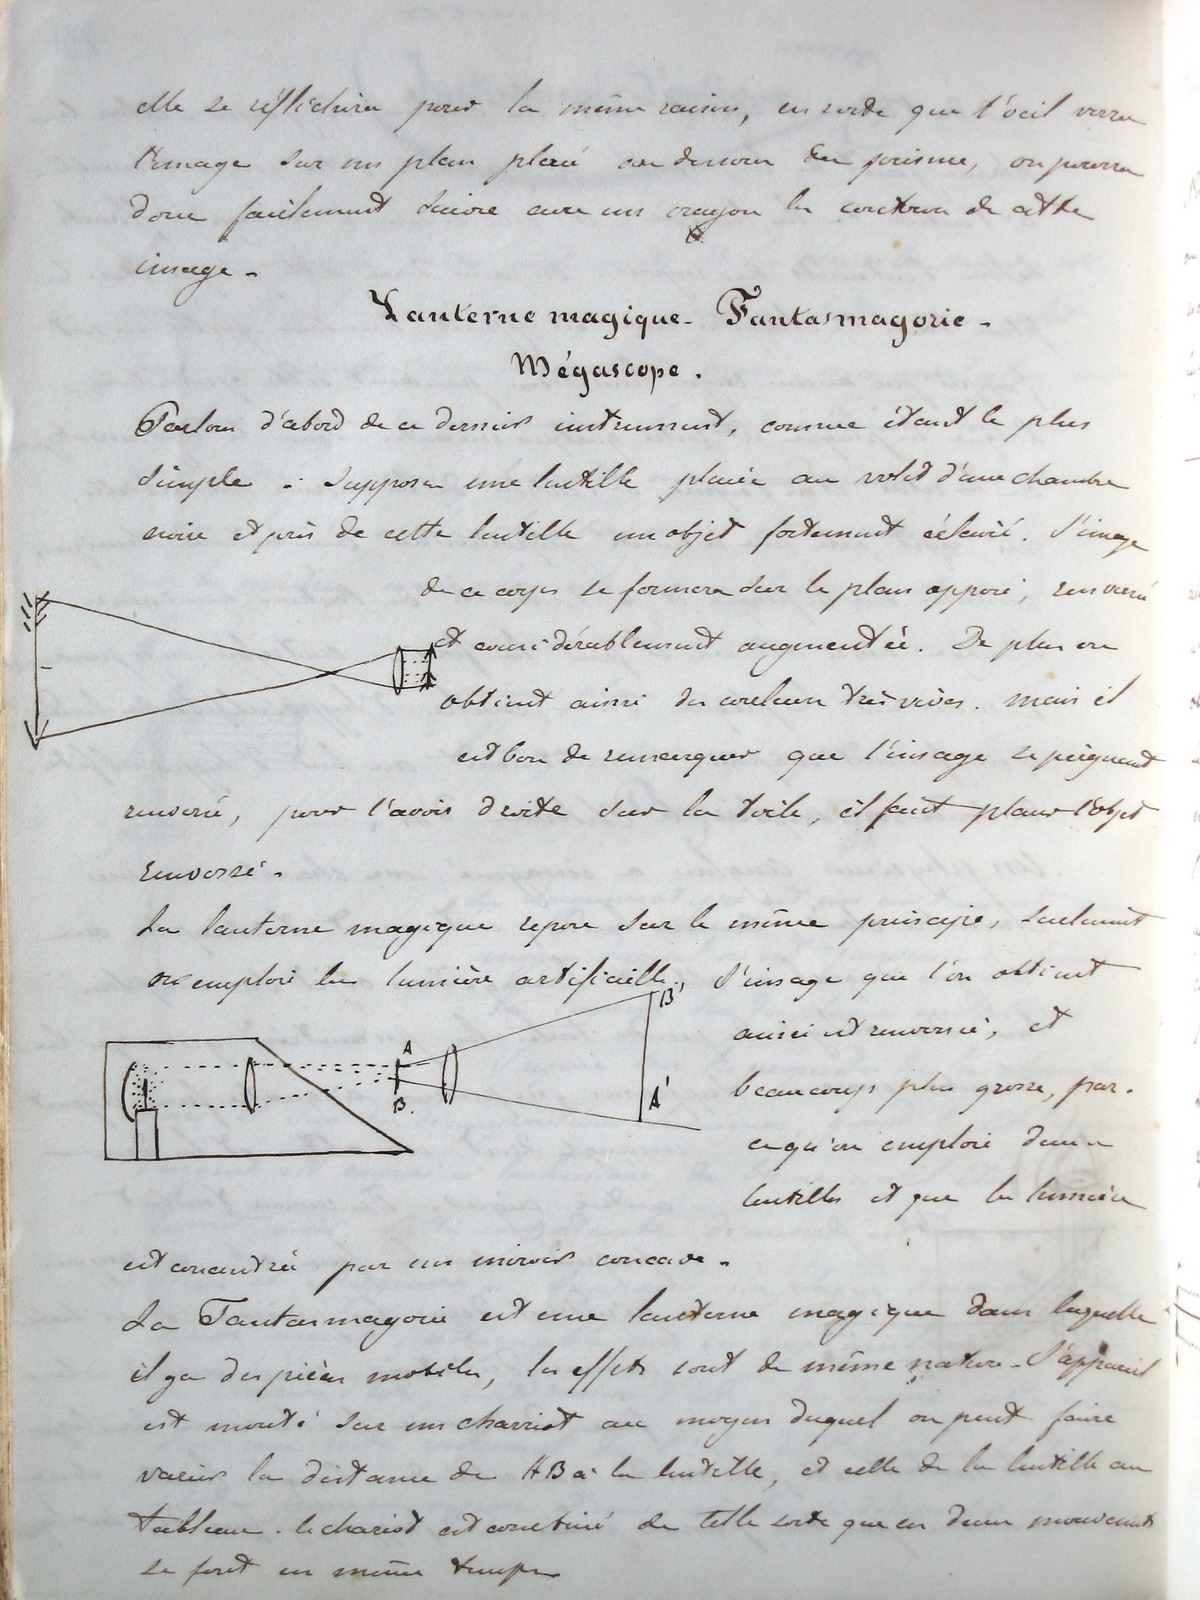 elle se réfléchira pour la même raison, en sorte que l'œil verra
l'image sur un plan placé au dessous du prisme, on pourra
donc facilement suivre avec un crayon les contours de cette
image.
Lanterne magique. Fantasmagorie.
Mégascope.
Parlons d'abord de ce dernier instrument, comme étant le plus
simple. Supposons une lentille placée au volet d'une chambre
noire et près de cette lentille un objet fortement éclairé. L'image
de ce corps se formera sur le plan opposé, renversée
et considérablement augmentée. De plus on
obtient aussi des couleurs très vives. Mais il
est bon de remarquer que l'image se peignant
renversée, pour l'avoir droite sur la toile, il faut placer l'objet
renversé.
La lanterne magique repose sur le même principe, seulement
on emploie la lumière artificielle, l'image que l'on obtient
B'
ainsi est renversée, et
A
B.
A'
beaucoup plus grosse, par-
cequ'on emploie deux
lentilles et que la lumière
est concentrée par un miroir concave.
La Fantasmagorie est une lanterne magique dans laquelle
il y a des pièces mobiles, les effets sont de même nature. L'appareil
est monté sur un charriot au moyen duquel on peut faire
varier la distance de AB à la lentille, et celle de la lentille au
tableau. le chariot est construit de telle sorte que ces deux mouvements
se font en même temps